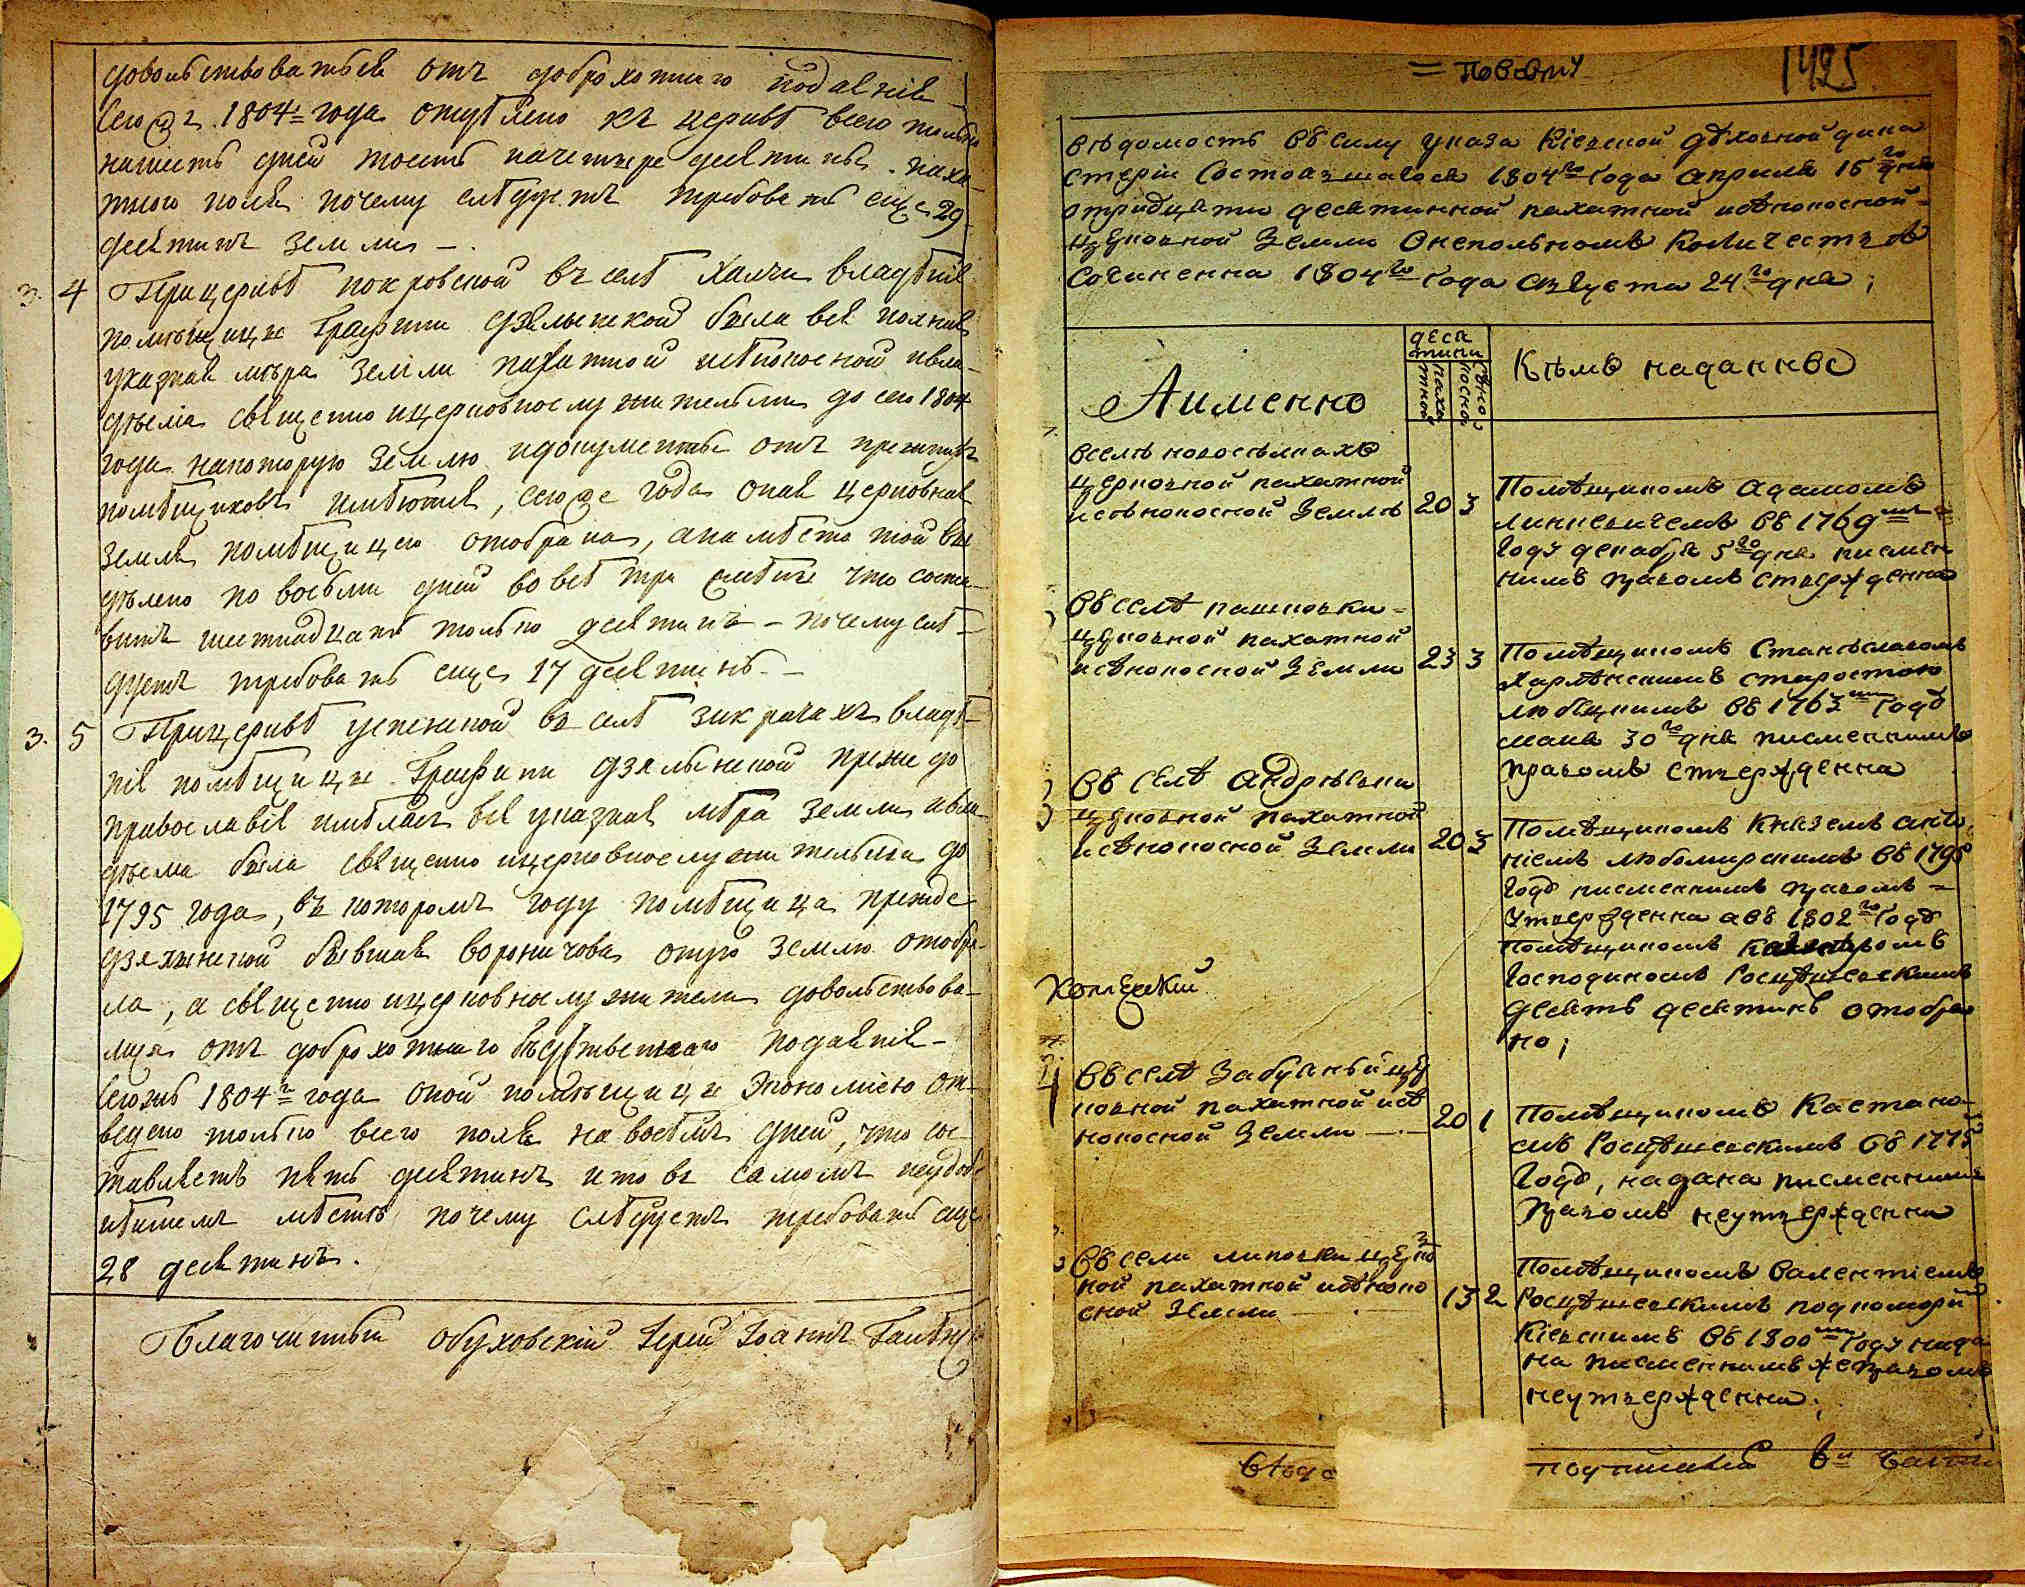 довольствоваться отъ доброхотнаго подаянія
сего 1804 года отдѣлено къ церквѣ всего только
нашесть дней тоесть начетыре десятины паха-
тного поля почему слѣдуетъ требовать еще 29
десятинъ земли –.
3. 4 Прицерквѣ покровской въ селѣ Халчи владѣнія
помѣщицы Графини дзялынской была вся полная
указная мѣра земли пахатной исѣнокосной ивла-
дѣема священно ицерковнослужительми до сего 1804
года накоторую землю идокументы отъ прежнихъ
помѣщиковъ имѣются, сего же года оная церковная
земля помѣщицею отобрана, анамѣсто той вы
дѣлено по восьми дней во всѣ три смѣны что соста-
витъ шестнадцать только десятинъ – почему слѣ-
дуетъ требовать еще 17 десятинъ. –
3. 5 Прицерквѣ успенской въ селѣ зикрачахъ владѣ-
нія помѣщицы Графини дзялынской прежде до
православія имѣлась вся указная мѣра земли ивла
дѣема была священно ицерковнослужительми до
1795 года, въ которомъ году помѣщица прежде
дзялынской бывшая вороничова оную землю отобра-
ла, а священно ицерковнослужители довольствова-
лися отъ доброхотнаго подаянія –
сегожъ 1804 года оной помѣщицы Экономіею от-
ведено только всего поля на восемь дней, что сос-
тавляетъ пять десятинъ ито въ самомъ неудоб-
нѣйшемъ мѣстѣ почему слѣдуетъ требовать еще
28 десятинъ.
Благочинный Обуховскій Іерей Іоаннъ
1425
вѣдомость въ силу указа Кіевской духовной дика
стеріи Состоявшагося 1804го Года априля 15го дня
отридцяти десятинной пахатной исѣнокосной –
церковной Земли Онепольномъ Количествѣ
Сочиненна 1804го Года августа 24го дня;
Аименно
деся
тини
пахатной
сѣнокосной
Кѣмъ наданно
вселѣ новосѣлкахъ
церковной пахатной
исѣнокосной Землѣ 20 3
Помѣщикомъ адамомъ
линкевичемъ въ 1769
Году декабря 5го дня писмен
нимъ правомъ стверждена
Въ селѣ пашковки –
церковной пахатной
исѣнокосной Земли 23 3
Помѣщикомъ Станѣславомъ
старостою
въ 1763 Году
мая 30го дня писменнимъ
правомъ стверждена
Въ селѣ андрѣевки
церковной пахатной
исѣнокосной Земли 20 3
Помѣщикомъ Княземъ анто
ніемъ любомирскимъ въ 1795
Году писменнимъ правомъ –
утвержденна авъ 1802го Году
помѣщикомъ
Господиномъ Росцѣшевскимъ
десять десятинъ отобра
но;
Въ селѣ Забуянья цер
ковной пахатной исѣ
нокосной Земли –.– 20 1
Помѣщикомъ Каетано
мъ Росцѣшевскимъ въ 1775
Году, надана писменнимъ
Правомъ неутвержденна
Въ сели липовки церков
ной пахатной исѣноко
сной Земли 13 2
Помѣщикомъ валентіемъ
Росцѣшевскимъ подкоморіи
Кіевскимъ въ 1800 Году нада
на писменнимъ же правомъ
неутвержденна;